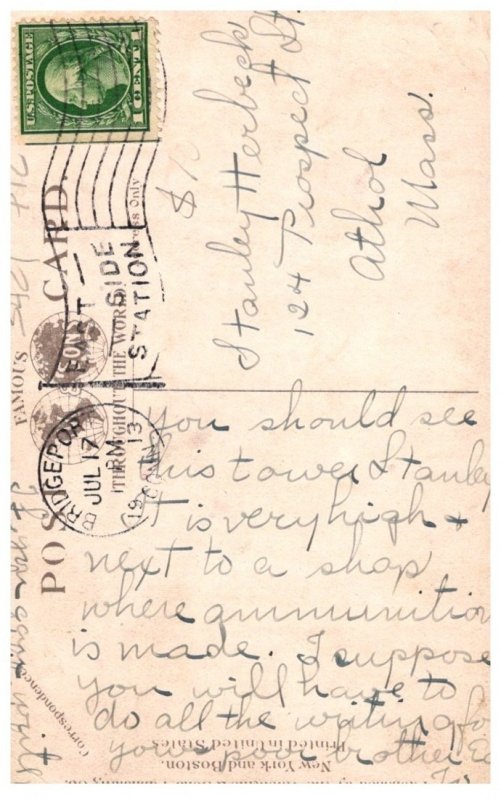 U.S. POSTAGE
1 CENT 1
BRIDGEPORT
JUL 17
PM
1913
CONN.
EAST
SIDE
STATION
POST CARD.
FAMOUS
THROUGHOUT THE WORLD
Only
Correspondence
Stanley Herbeck
124 Prospect St.
Athol
Mass.
You should see
this tower Stanley
It is very high +
next to a shop
where ammunition
is made. I suppose
you will have to
do all the writing for
your poor brother Ed
New York and Boston.
Printed in United States